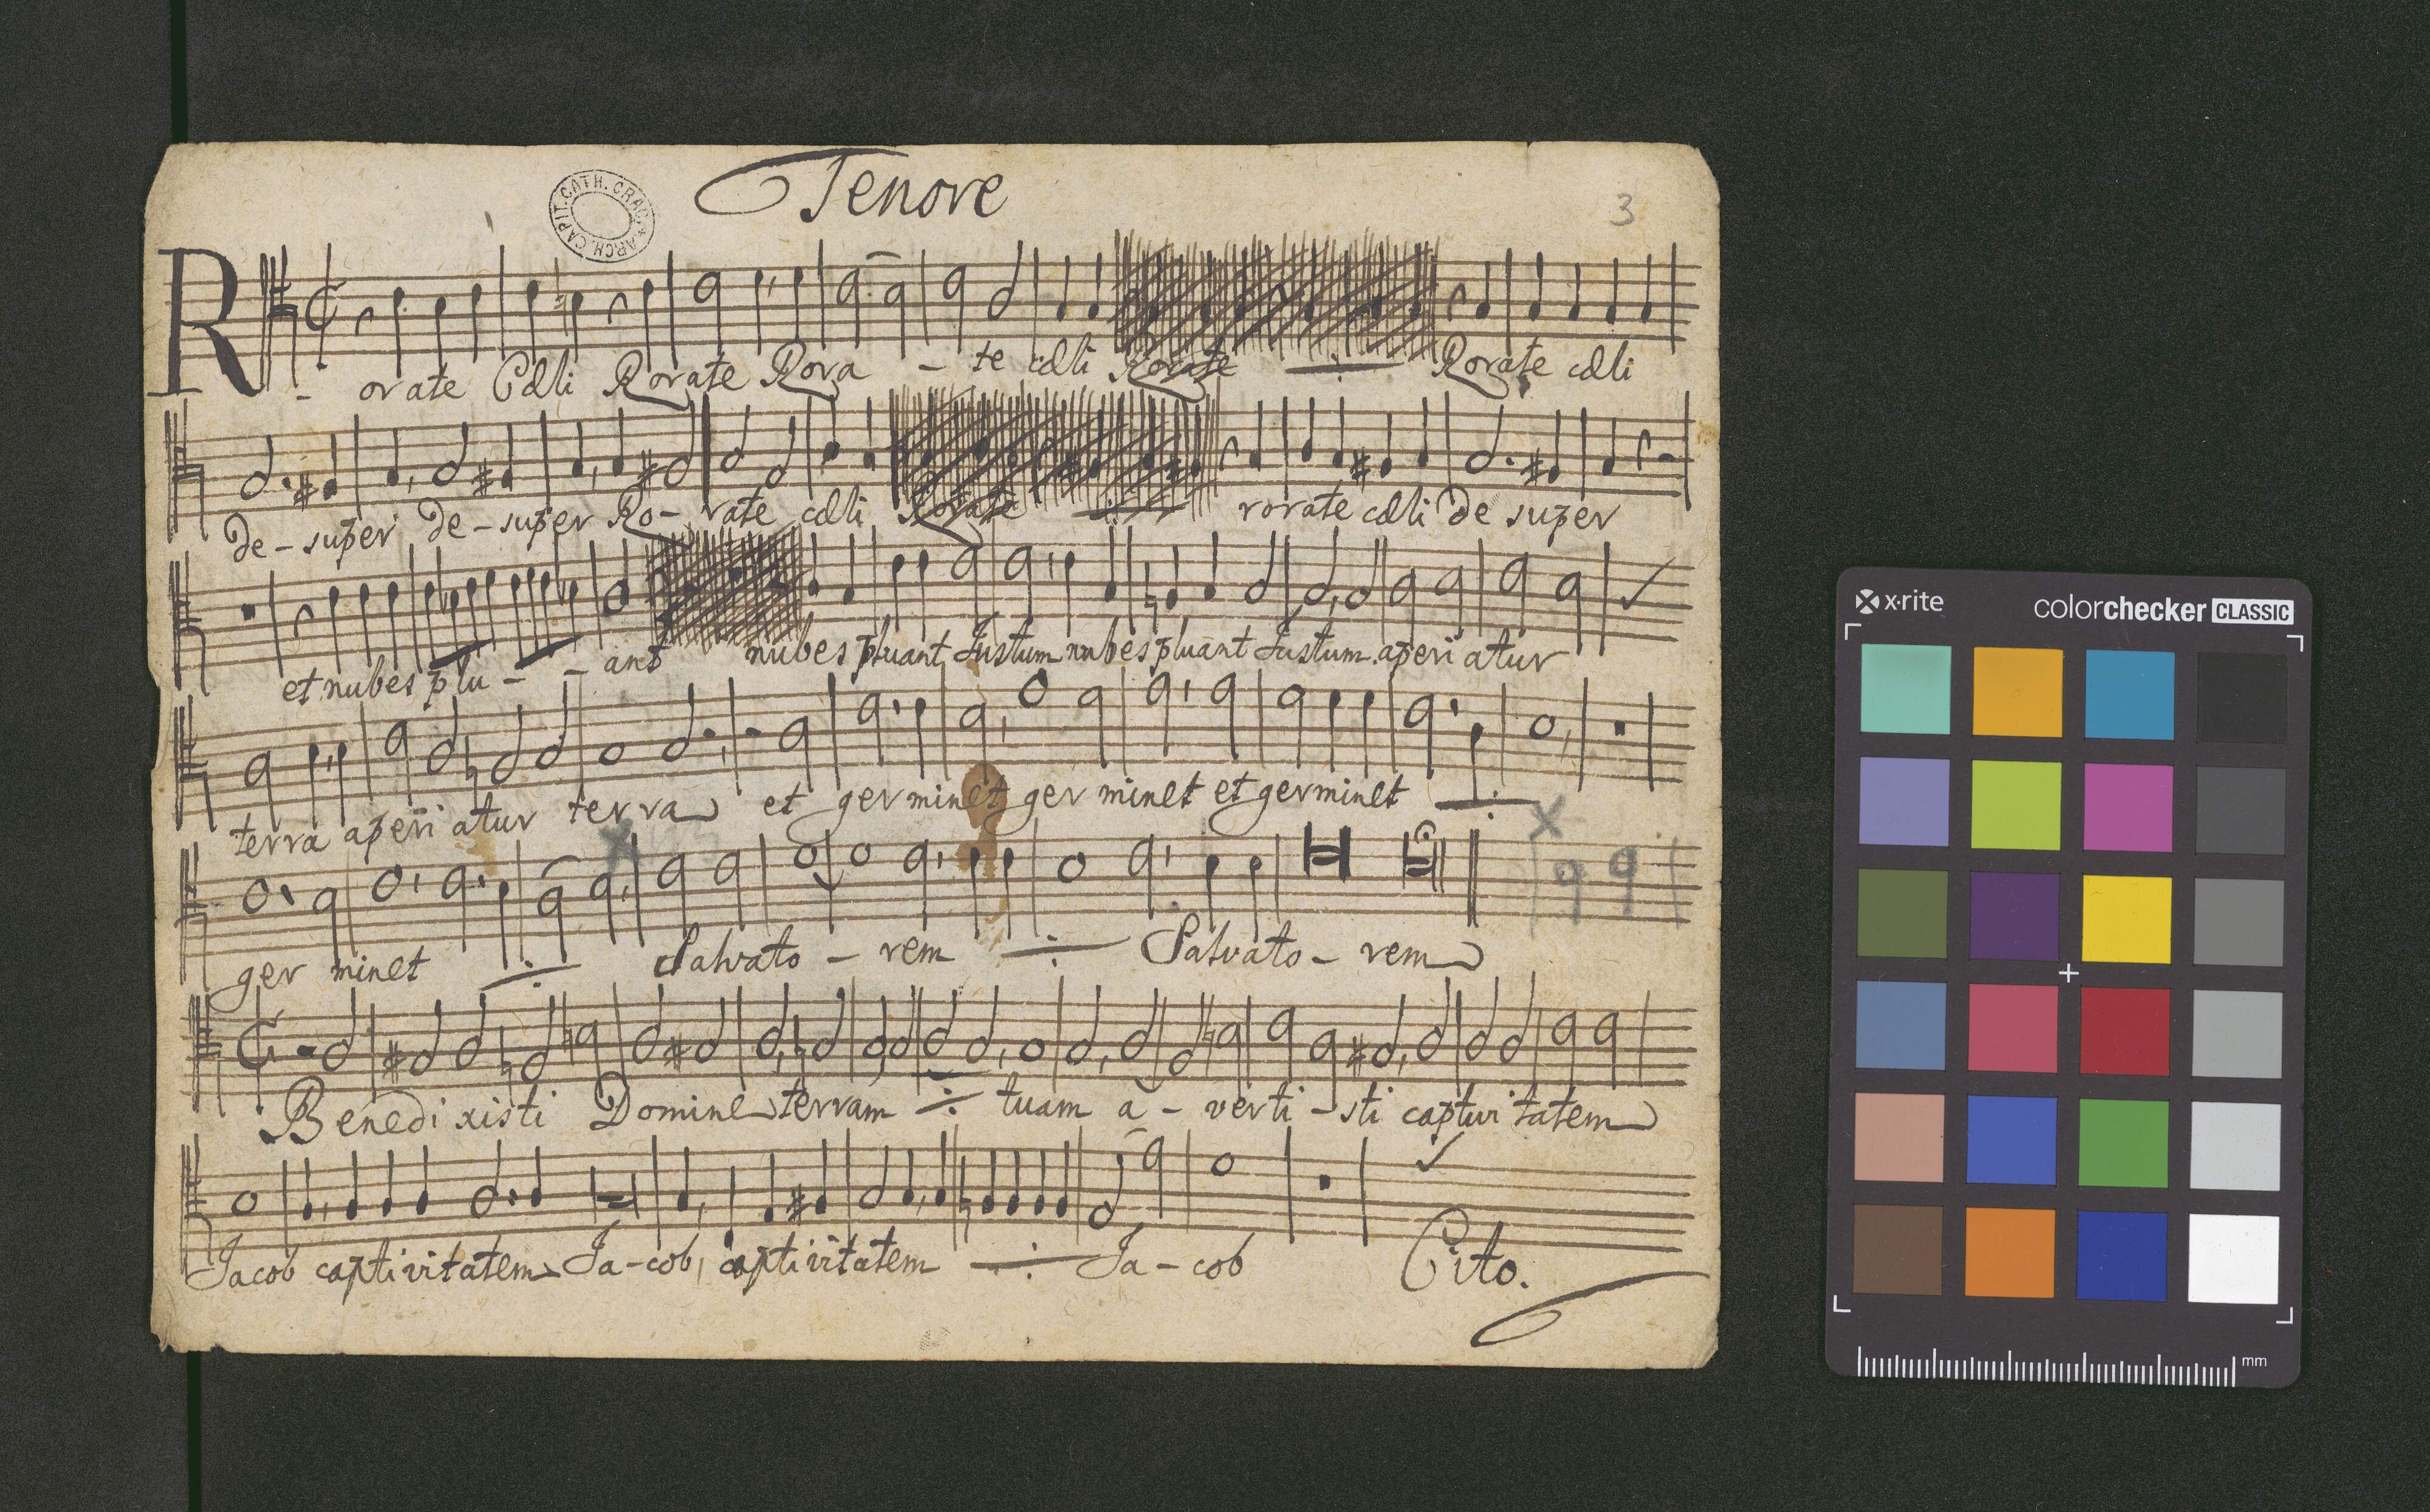 Tenore
ARCH. CAPIT. CATH. CRAC.
3
R - orate Cæli Rorate Rora - te cæli Rorate Rorate cæli
De - super De - super Ro - rate cæli Rorate rorate cæli De super
et nubes plu - - ant nubes pluant Justum nubes pluant Justum aperiatur
terra aperiatur terra et germinet germinet et germinet
x
germinet Salvato - rem Salvato - rem
Benedixisti Domine terram tuam a - verti - sti captivitatem
Jacob captivitatem Ja - cob captivitatem Ja - cob Cito.
x-rite colorchecker CLASSIC
mm